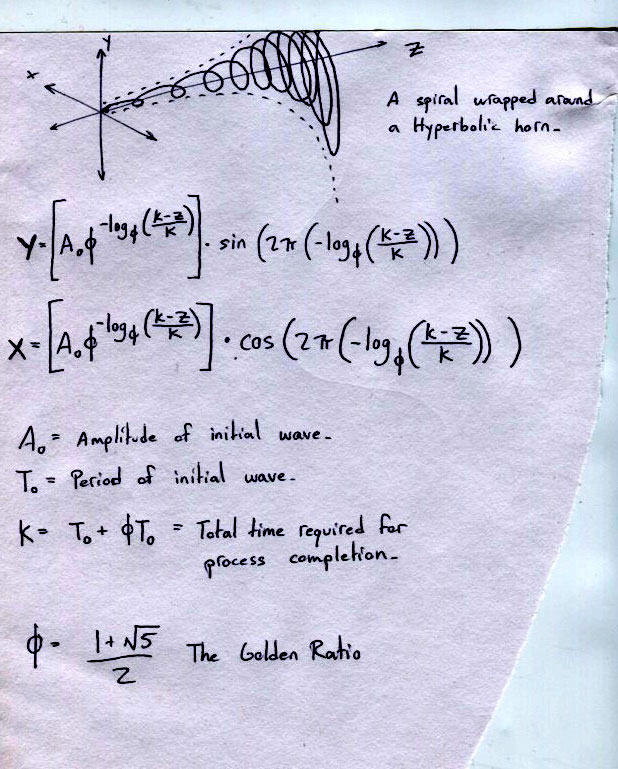 Y
x
Z
A spiral wrapped around
a Hyperbolic horn.
Y = [A₀ϕ^(-log_ϕ((k-z)/k))] · sin (2π (-log_ϕ((k-z)/k)))
X = [A₀ϕ^(-log_ϕ((k-z)/k))] · cos (2π (-log_ϕ((k-z)/k)))
A₀ = Amplitude of initial wave.
T₀ = Period of initial wave.
K = T₀ + ϕT₀ = Total time required for
process completion.
ϕ = (1+√5)/2 The Golden Ratio